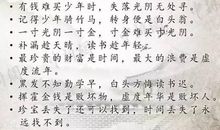 · 有钱难买少年时,失落光阴无处寻。
· 记得少年骑竹马,转身便是白头翁。
· 一寸光阴一寸金,寸金难买寸光阴。
· 补漏趁天晴,读书趁年轻。
· 最珍贵的财富是时间,最大的浪费是虚度流年。
· 黑发不知勤学早,白头方悔读书迟。
· 挥霍金钱是败坏物,虚度年华是败坏人。
· 珍宝丢失了还可以找到,时间丢失了永远找不到。